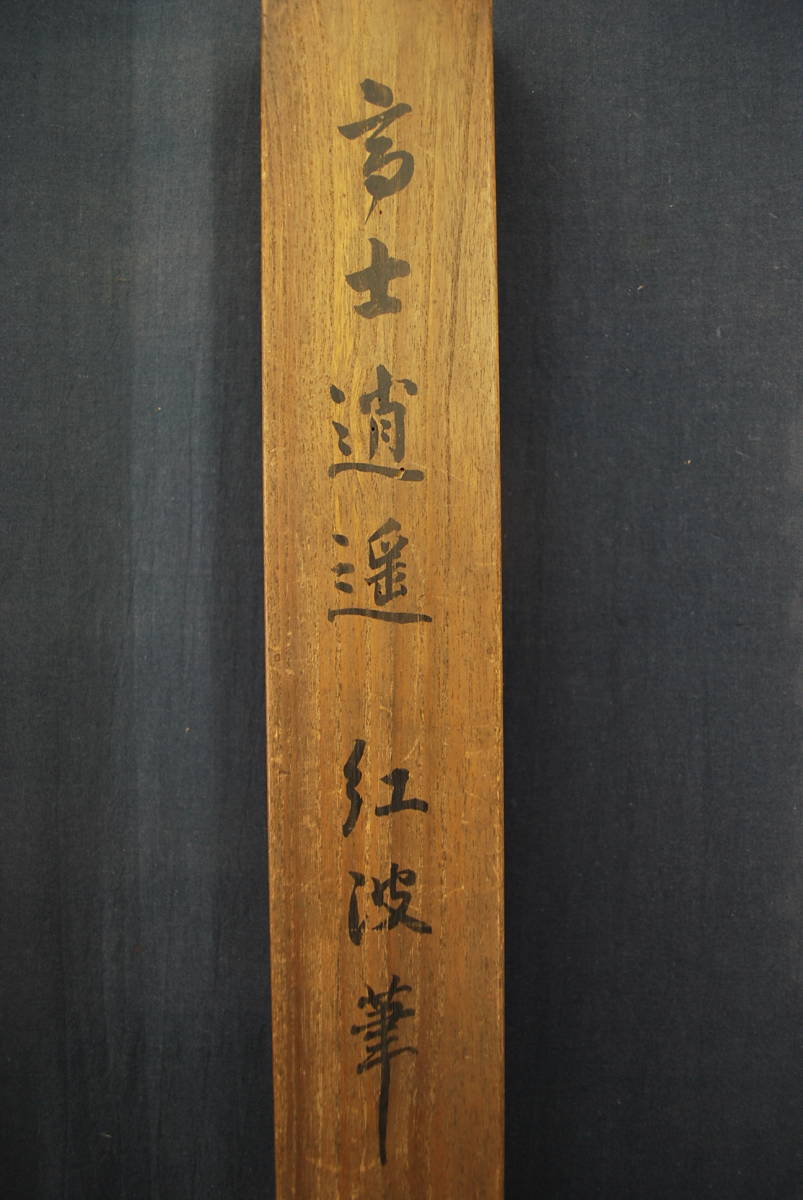 高士逍遥 紅波筆